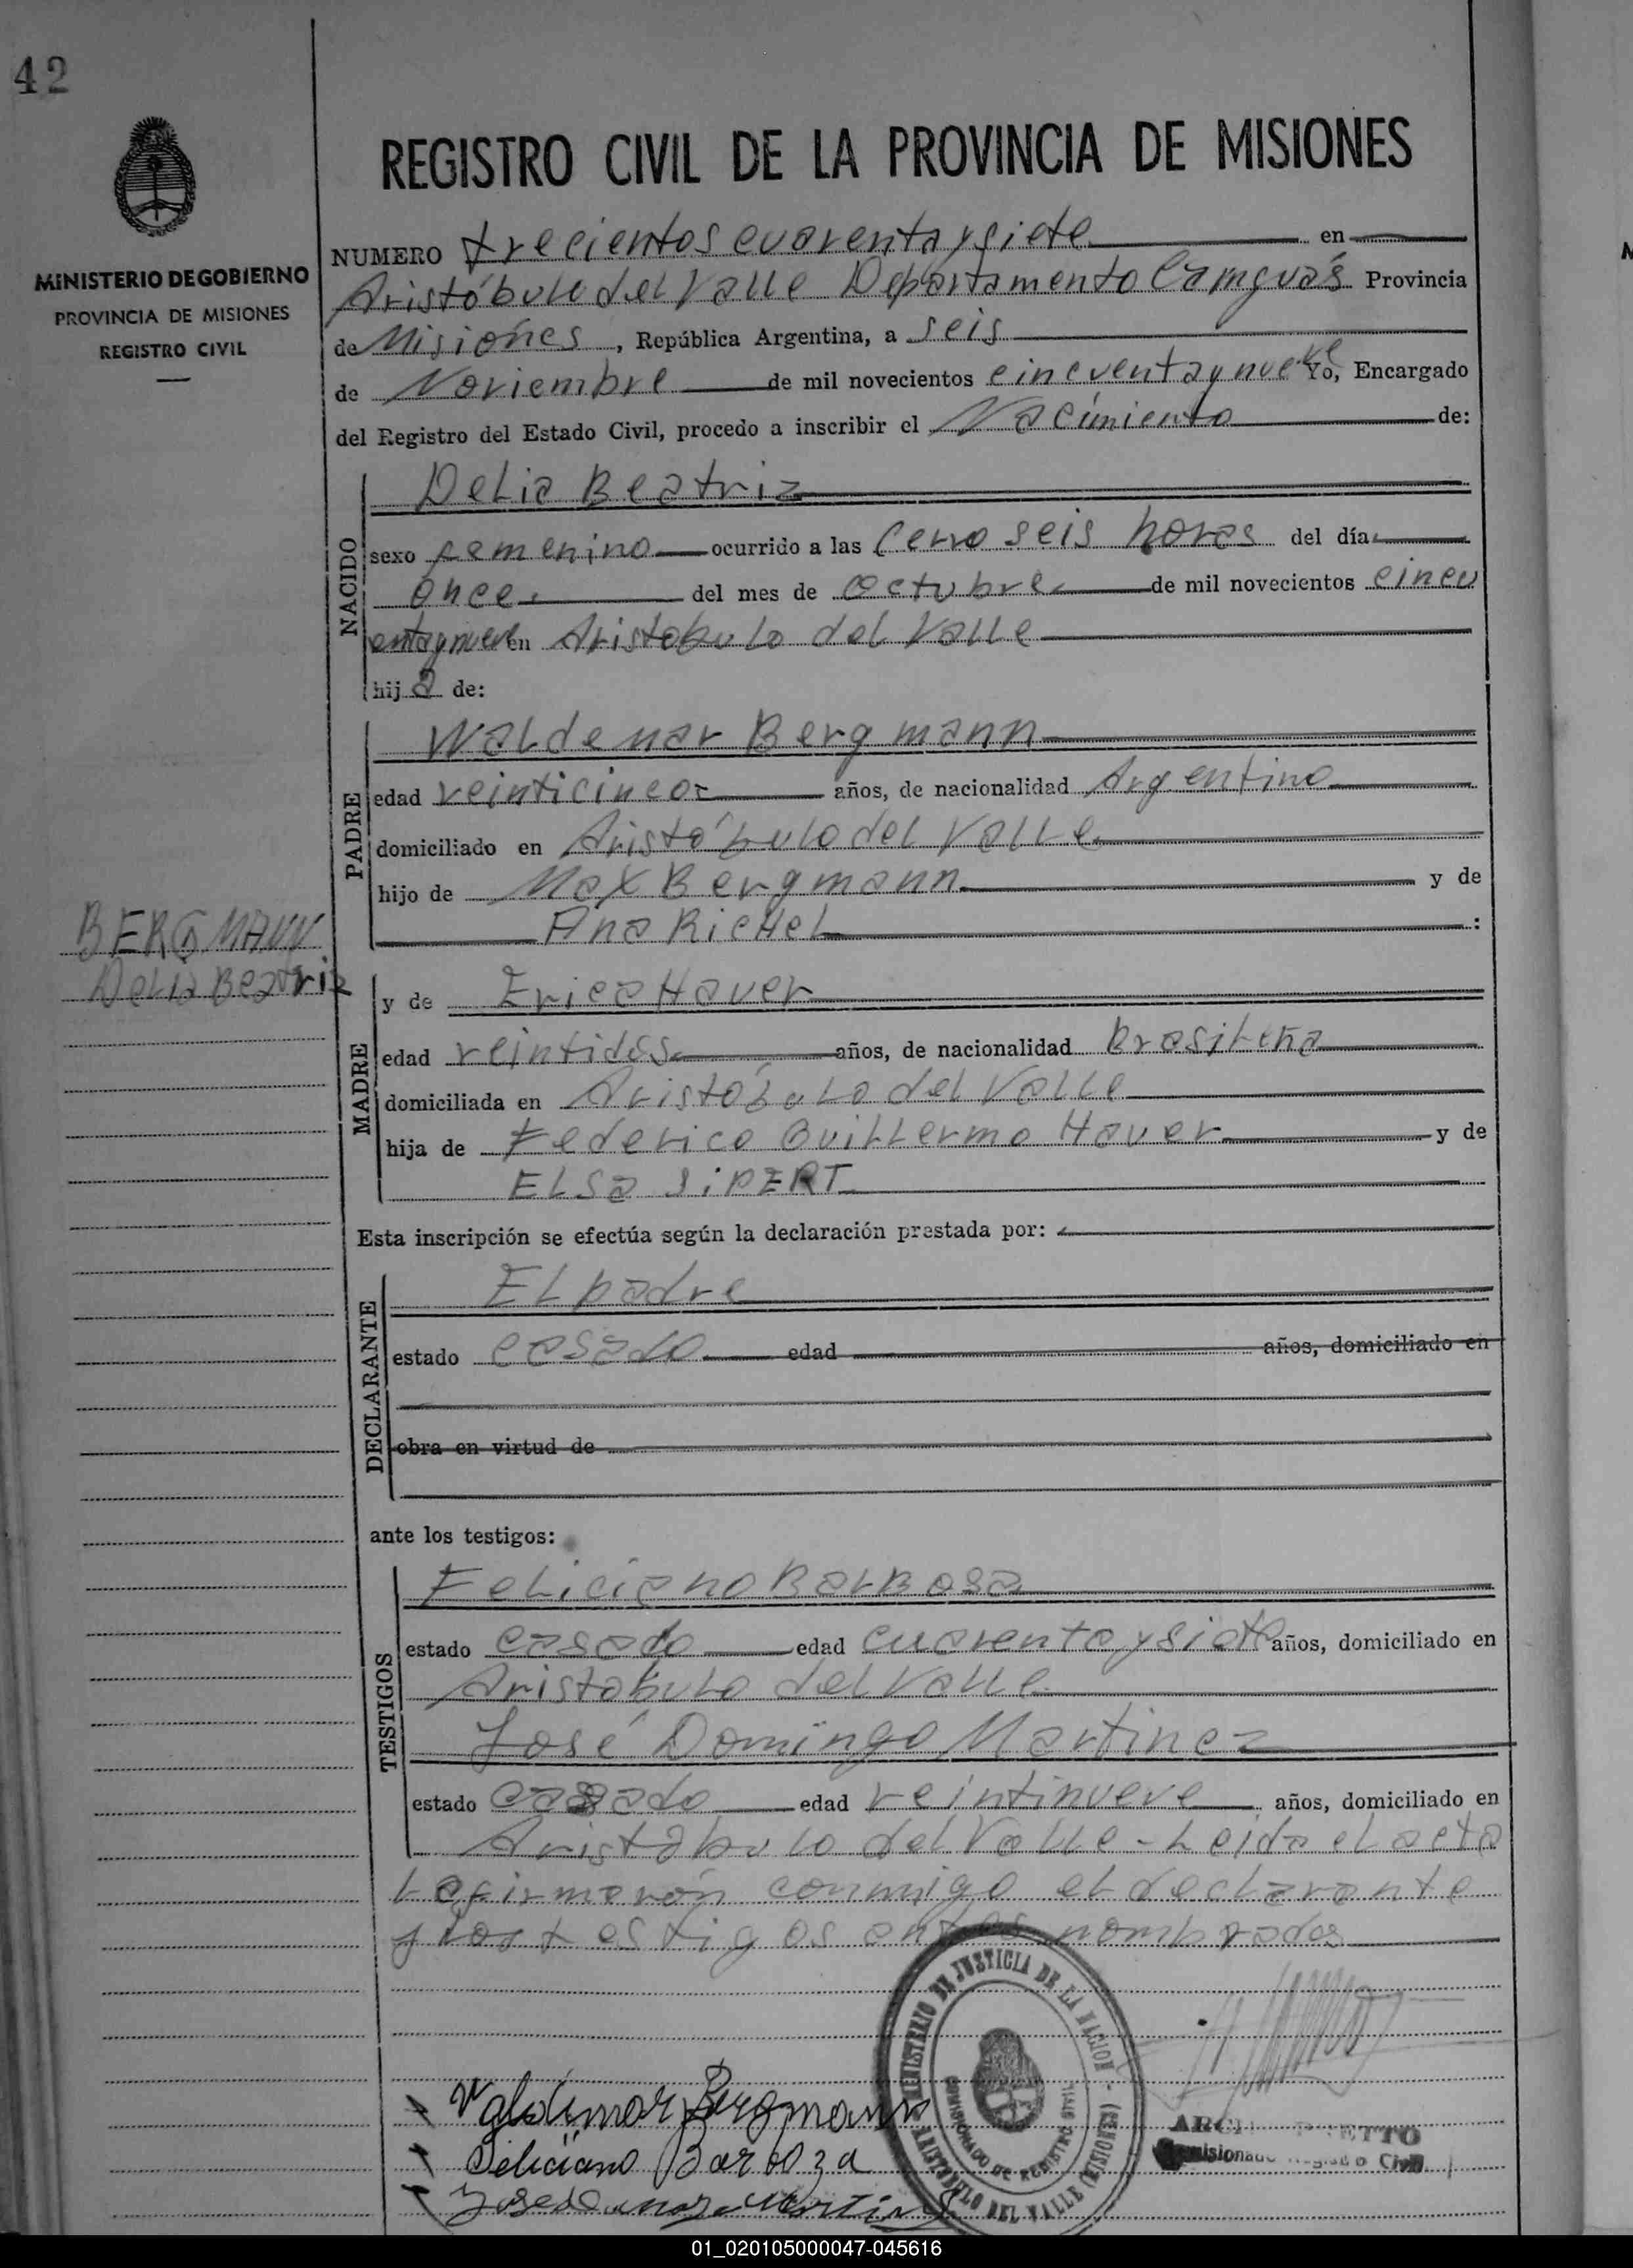 42
MINISTERIO DE GOBIERNO
PROVINCIA DE MISIONES
REGISTRO CIVIL
REGISTRO CIVIL DE LA PROVINCIA DE MISIONES
NUMERO trecientos cuarenta y siete en
Aristóbulo del Valle Departamento Caingúas Provincia
de Misiónes, República Argentina, a seis
de Noviembre de mil novecientos cincuenta y nueve Yo, Encargado
del Registro del Estado Civil, procedo a inscribir el Nacimiento de:
NACIDO
Delia Beatriz
sexo femenino ocurrido a las Cerro seis horas del día
once del mes de octubre de mil novecientos cincu
entaynueve en Aristobulo del Valle
hija de:
PADRE
Waldemar Bergmann
edad veinticinco años, de nacionalidad Argentino
domiciliado en Aristóbulo del Valle
hijo de Max Bergmann y de
Ana Richel :
BERGMANN
Delia Beatriz
MADRE
y de Erica Hauer
edad veintidós años, de nacionalidad Brasileña
domiciliada en Aristóbulo del Valle
hija de Federico Guillermo Hauer y de
ELSa SiPERT
Esta inscripción se efectúa según la declaración prestada por:
DECLARANTE
El padre
estado casado edad años, domiciliado en
obra en virtud de
ante los testigos:
TESTIGOS
Feliciano Barbosa
estado casado edad cuarenta y siete años, domiciliado en
Aristobulo del Valle
José Domingo Martinez
estado casado edad veintinueve años, domiciliado en
Aristobulo del Valle - Leida el acta
La firmarón conmigo el declarante
y los testigos antes nombrados
MINISTERIO DE JUSTICIA DE LA NACION - ARISTOBULO DEL VALLE (MISIONES)
COMISIONADO DE REGISTRO CIVIL
Valdimar Bergmann
Feliciano Barboza
Jose Domingo Martinez
Comisionado Registro Civil
01_020105000047-045616